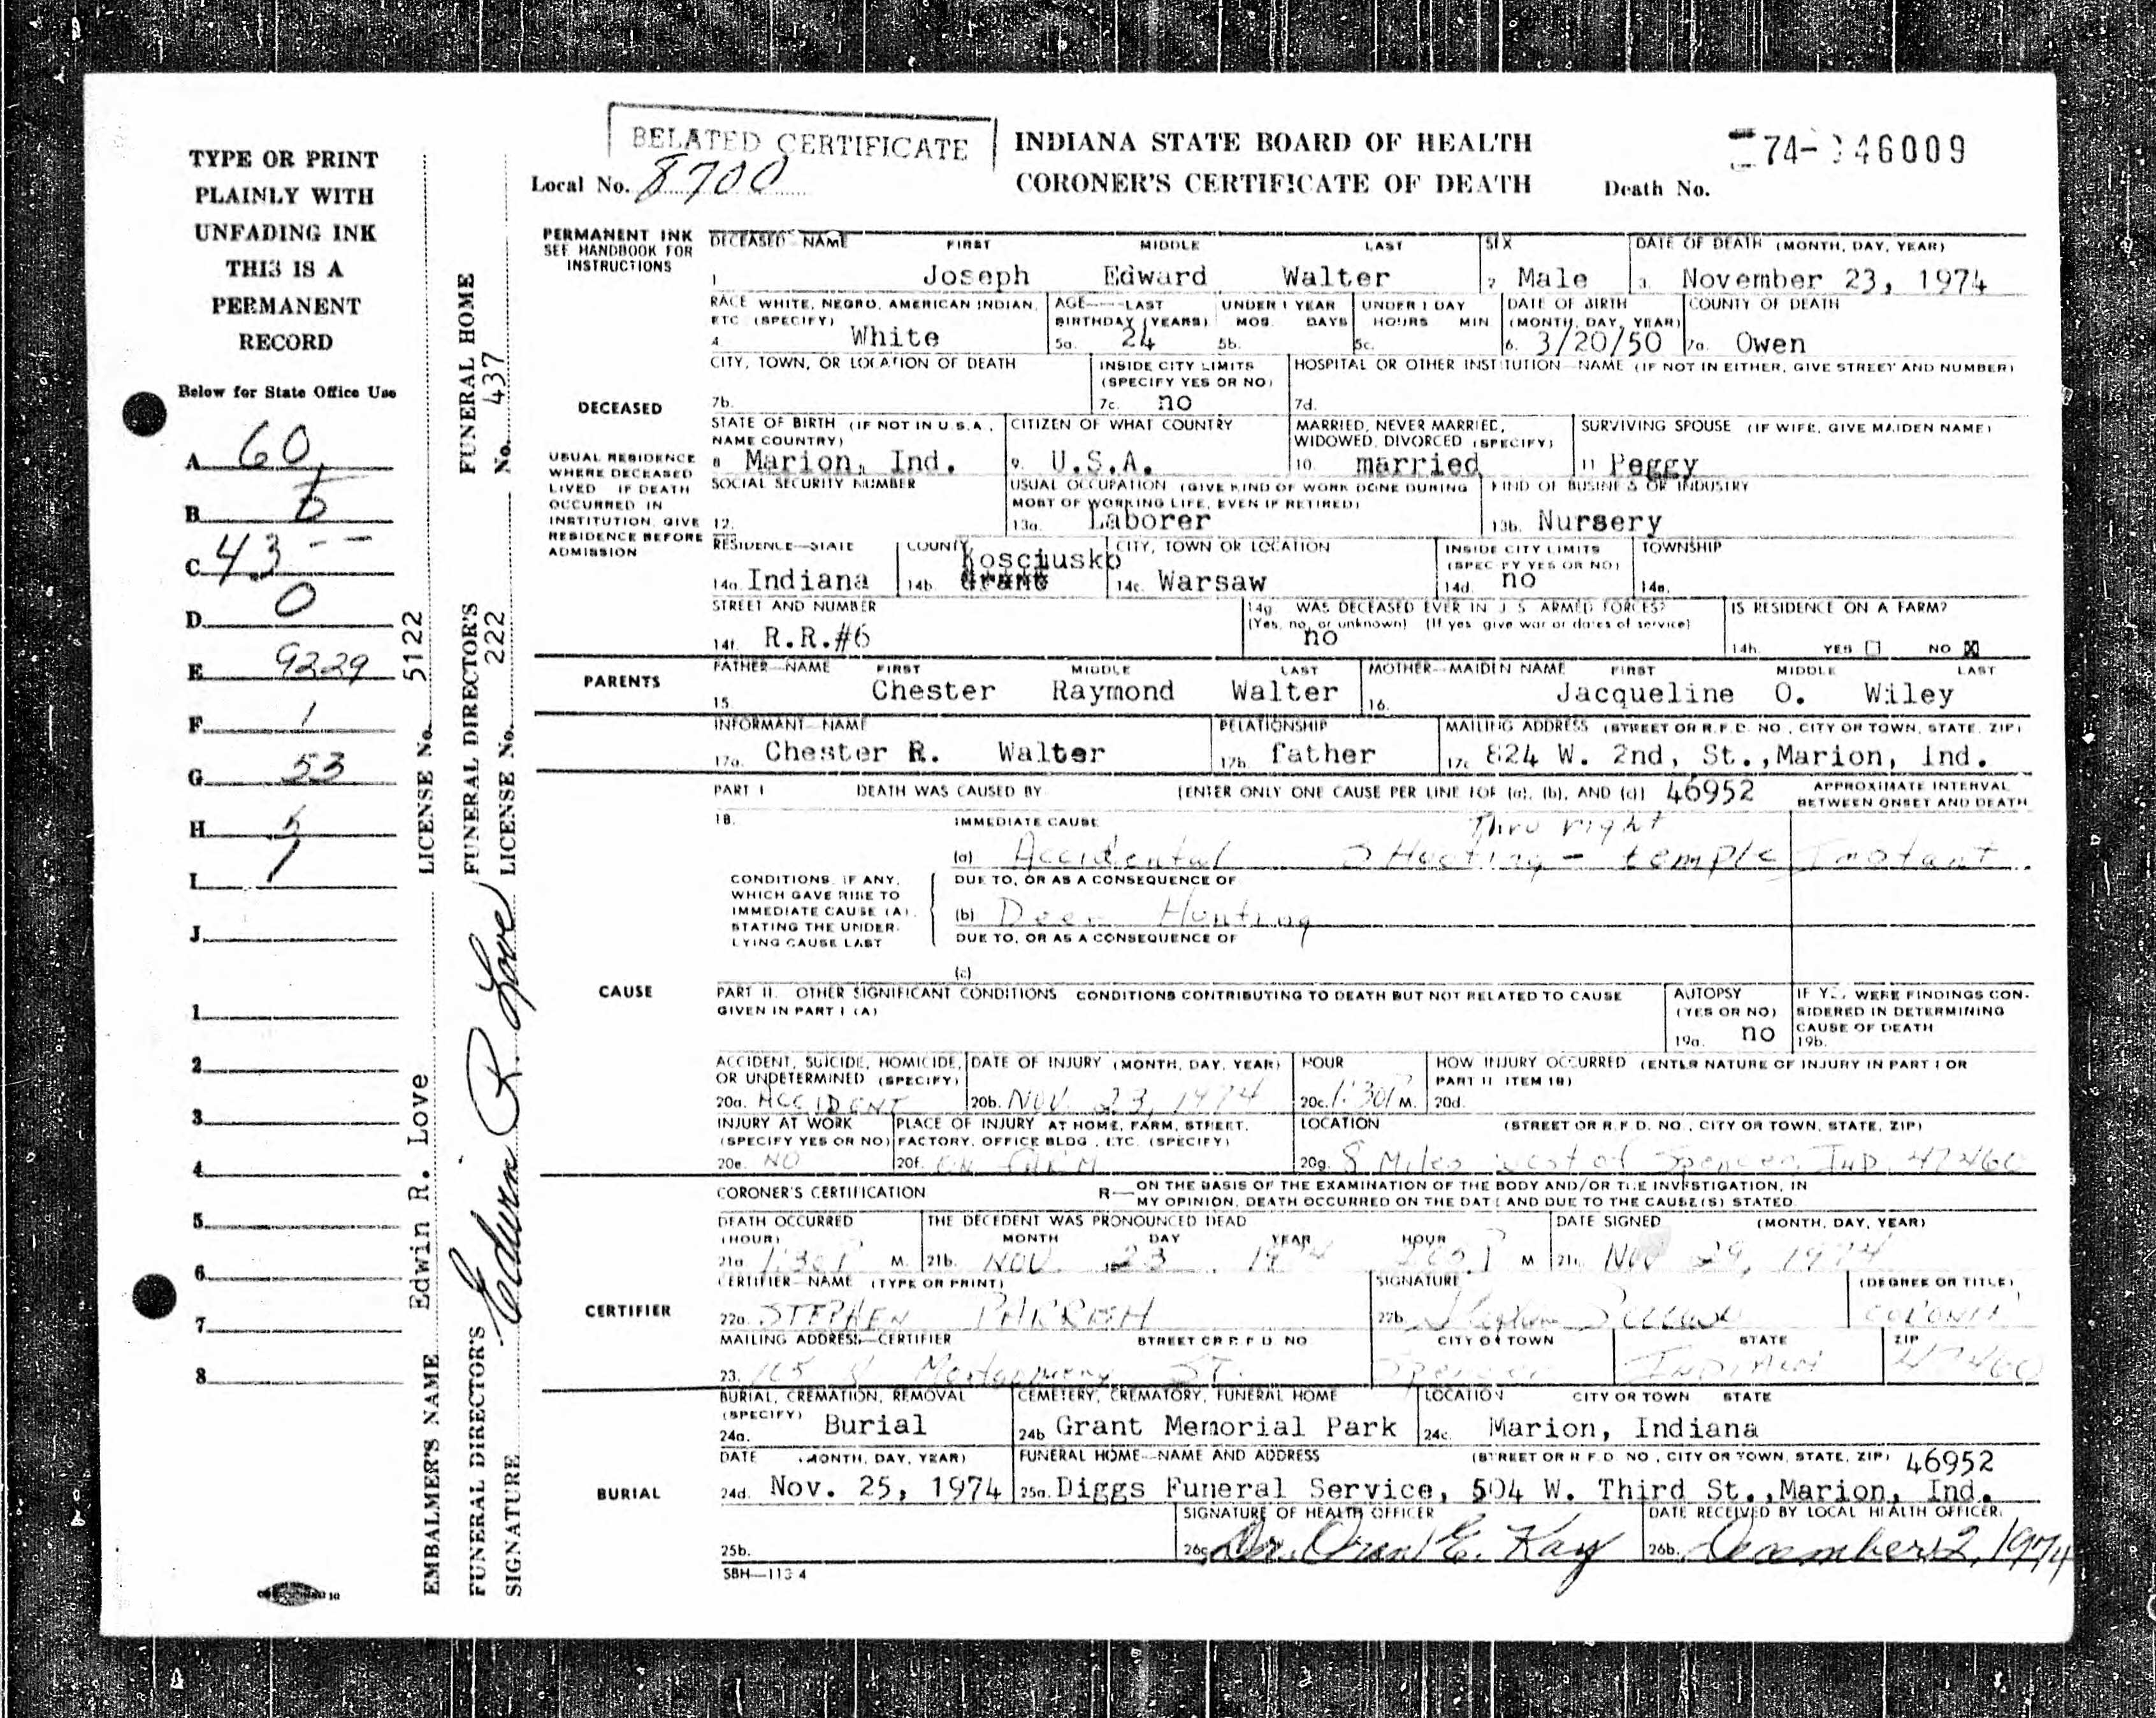 BELATED CERTIFICATE
INDIANA STATE BOARD OF HEALTH
CORONER'S CERTIFICATE OF DEATH
Local No. 8700
Death No. 74- 46009
TYPE OR PRINT
PLAINLY WITH
UNFADING INK
THIS IS A
PERMANENT
RECORD
Below for State Office Use
A 60
B 6
C 43 - -
D 0
E 9229
F 1
G 53
H 5
I 1
J
1
2
3
4
5
6
7
8
EMBALMER'S NAME Edwin R. Love LICENSE No. 5122
FUNERAL DIRECTOR'S SIGNATURE Edwin R. Love
FUNERAL DIRECTOR'S LICENSE No. 222
FUNERAL HOME No. 437
PERMANENT INK
SEE HANDBOOK FOR
INSTRUCTIONS
DECEASED
USUAL RESIDENCE
WHERE DECEASED
LIVED IF DEATH
OCCURRED IN
INSTITUTION, GIVE
RESIDENCE BEFORE
ADMISSION
DECEASED NAME FIRST MIDDLE LAST
1 Joseph Edward Walter
SEX
2 Male
DATE OF DEATH (MONTH, DAY, YEAR)
3. November 23, 1974
RACE WHITE, NEGRO, AMERICAN INDIAN,
ETC (SPECIFY)
4 White
AGE LAST
BIRTHDAY (YEARS)
5a. 24
UNDER 1 YEAR
MOS. DAYS
5b.
UNDER 1 DAY
HOURS MIN
5c.
DATE OF BIRTH
(MONTH, DAY, YEAR)
6. 3/20/50
COUNTY OF DEATH
7a. Owen
CITY, TOWN, OR LOCATION OF DEATH
7b.
INSIDE CITY LIMITS
(SPECIFY YES OR NO)
7c. no
HOSPITAL OR OTHER INSTITUTION NAME (IF NOT IN EITHER, GIVE STREET AND NUMBER)
7d.
STATE OF BIRTH (IF NOT IN U.S.A.,
NAME COUNTRY)
8 Marion, Ind.
CITIZEN OF WHAT COUNTRY
9. U.S.A.
MARRIED, NEVER MARRIED,
WIDOWED, DIVORCED (SPECIFY)
10. married
SURVIVING SPOUSE (IF WIFE, GIVE MAIDEN NAME)
11 Peggy
SOCIAL SECURITY NUMBER
12.
USUAL OCCUPATION (GIVE KIND OF WORK DONE DURING
MOST OF WORKING LIFE, EVEN IF RETIRED)
13a. Laborer
KIND OF BUSINESS OR INDUSTRY
13b. Nursery
RESIDENCE—STATE
14a. Indiana
COUNTY
Kosciusko
14b. Grant
CITY, TOWN OR LOCATION
14c. Warsaw
INSIDE CITY LIMITS
(SPECIFY YES OR NO)
14d. no
TOWNSHIP
14e.
STREET AND NUMBER
14f. R.R.#6
14g WAS DECEASED EVER IN U S ARMED FORCES?
(Yes, no, or unknown) (If yes give war or dates of service)
no
IS RESIDENCE ON A FARM?
14h. YES ☐ NO ☒
PARENTS
FATHER—NAME FIRST MIDDLE LAST
15. Chester Raymond Walter
MOTHER—MAIDEN NAME FIRST MIDDLE LAST
16. Jacqueline O. Wiley
INFORMANT—NAME
17a. Chester R. Walter
RELATIONSHIP
17b. father
MAILING ADDRESS (STREET OR R.F.D. NO, CITY OR TOWN, STATE, ZIP)
17c 824 W. 2nd, St.,Marion, Ind.
46952
CAUSE
PART I DEATH WAS CAUSED BY [ENTER ONLY ONE CAUSE PER LINE FOR (a), (b), AND (c)]
APPROXIMATE INTERVAL
BETWEEN ONSET AND DEATH
18. IMMEDIATE CAUSE
thru right
(a) Accidental Shooting - temple Instant
CONDITIONS, IF ANY,
WHICH GAVE RISE TO
IMMEDIATE CAUSE (A),
STATING THE UNDER-
LYING CAUSE LAST
DUE TO, OR AS A CONSEQUENCE OF
(b) Deer Hunting
DUE TO, OR AS A CONSEQUENCE OF
(c)
PART II. OTHER SIGNIFICANT CONDITIONS CONDITIONS CONTRIBUTING TO DEATH BUT NOT RELATED TO CAUSE
GIVEN IN PART I (A)
AUTOPSY
(YES OR NO)
19a. no
IF YES, WERE FINDINGS CON-
SIDERED IN DETERMINING
CAUSE OF DEATH
19b.
ACCIDENT, SUICIDE, HOMICIDE,
OR UNDETERMINED (SPECIFY)
20a. ACCIDENT
DATE OF INJURY (MONTH, DAY, YEAR)
20b. NOV. 23, 1974
HOUR
20c. 1:30P M.
HOW INJURY OCCURRED (ENTER NATURE OF INJURY IN PART I OR
PART II ITEM 18)
20d.
INJURY AT WORK
(SPECIFY YES OR NO)
20e. NO
PLACE OF INJURY AT HOME, FARM, STREET,
FACTORY, OFFICE BLDG., ETC. (SPECIFY)
20f. ON FARM
LOCATION (STREET OR R.F.D. NO., CITY OR TOWN, STATE, ZIP)
20g. 8 Miles west of Spencer, Ind 47460
CERTIFIER
CORONER'S CERTIFICATION
R— ON THE BASIS OF THE EXAMINATION OF THE BODY AND/OR THE INVESTIGATION, IN
MY OPINION, DEATH OCCURRED ON THE DATE AND DUE TO THE CAUSE(S) STATED.
DEATH OCCURRED
(HOUR)
21a 1:30P M.
THE DECEDENT WAS PRONOUNCED DEAD
MONTH DAY YEAR HOUR
21b. NOV. 23 1974 P M
DATE SIGNED (MONTH, DAY, YEAR)
21c. Nov 29, 1974
CERTIFIER—NAME (TYPE OR PRINT)
22a. STEPHEN PARRISH
SIGNATURE
22b.
(DEGREE OR TITLE)
CORONER
MAILING ADDRESS—CERTIFIER STREET OR R.F.D. NO CITY OR TOWN STATE ZIP
23. Montgomery St. Spencer INDIANA 47460
BURIAL
BURIAL, CREMATION, REMOVAL
(SPECIFY)
24a. Burial
CEMETERY, CREMATORY, FUNERAL HOME
24b Grant Memorial Park
LOCATION CITY OR TOWN STATE
24c. Marion, Indiana
DATE (MONTH, DAY, YEAR)
24d. Nov. 25, 1974
FUNERAL HOME—NAME AND ADDRESS (STREET OR R.F.D. NO., CITY OR TOWN, STATE, ZIP) 46952
25a. Diggs Funeral Service, 504 W. Third St.,Marion, Ind.
25b.
SIGNATURE OF HEALTH OFFICER
Dr. Oran E. Kay
DATE RECEIVED BY LOCAL HEALTH OFFICER
26b. December 2, 1974
SBH—113-4